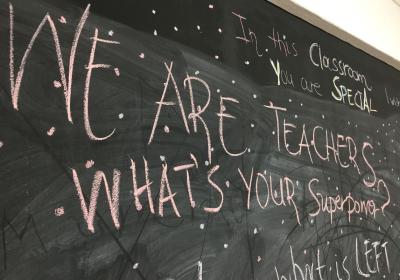 In this Classroom
You are SPECIAL
WE ARE TEACHERS
WHAT'S YOUR Superpower?
what is LEFT